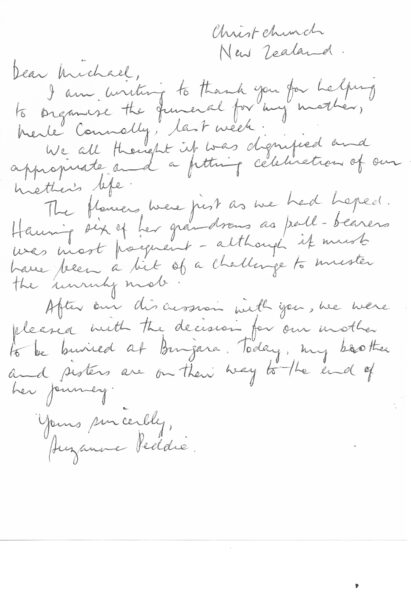 Christchurch
New Zealand.
Dear Michael,
I am writing to thank you for helping
to organise the funeral for my mother,
Merle Connolly, last week.
We all thought it was dignified and
appropriate and a fitting celebration of our
mother's life.
The flowers were just as we had hoped.
Having six of her grandsons as pall-bearers
was most poignent - although it must
have been a bit of a challenge to muster
the unruly mob.
After our discussion with you, we were
pleased with the decision for our mother
to be buried at Bingara. Today, my brother
and sisters are on their way to the end of
her journey.
Yours sincerely,
Suzanne Peddie.